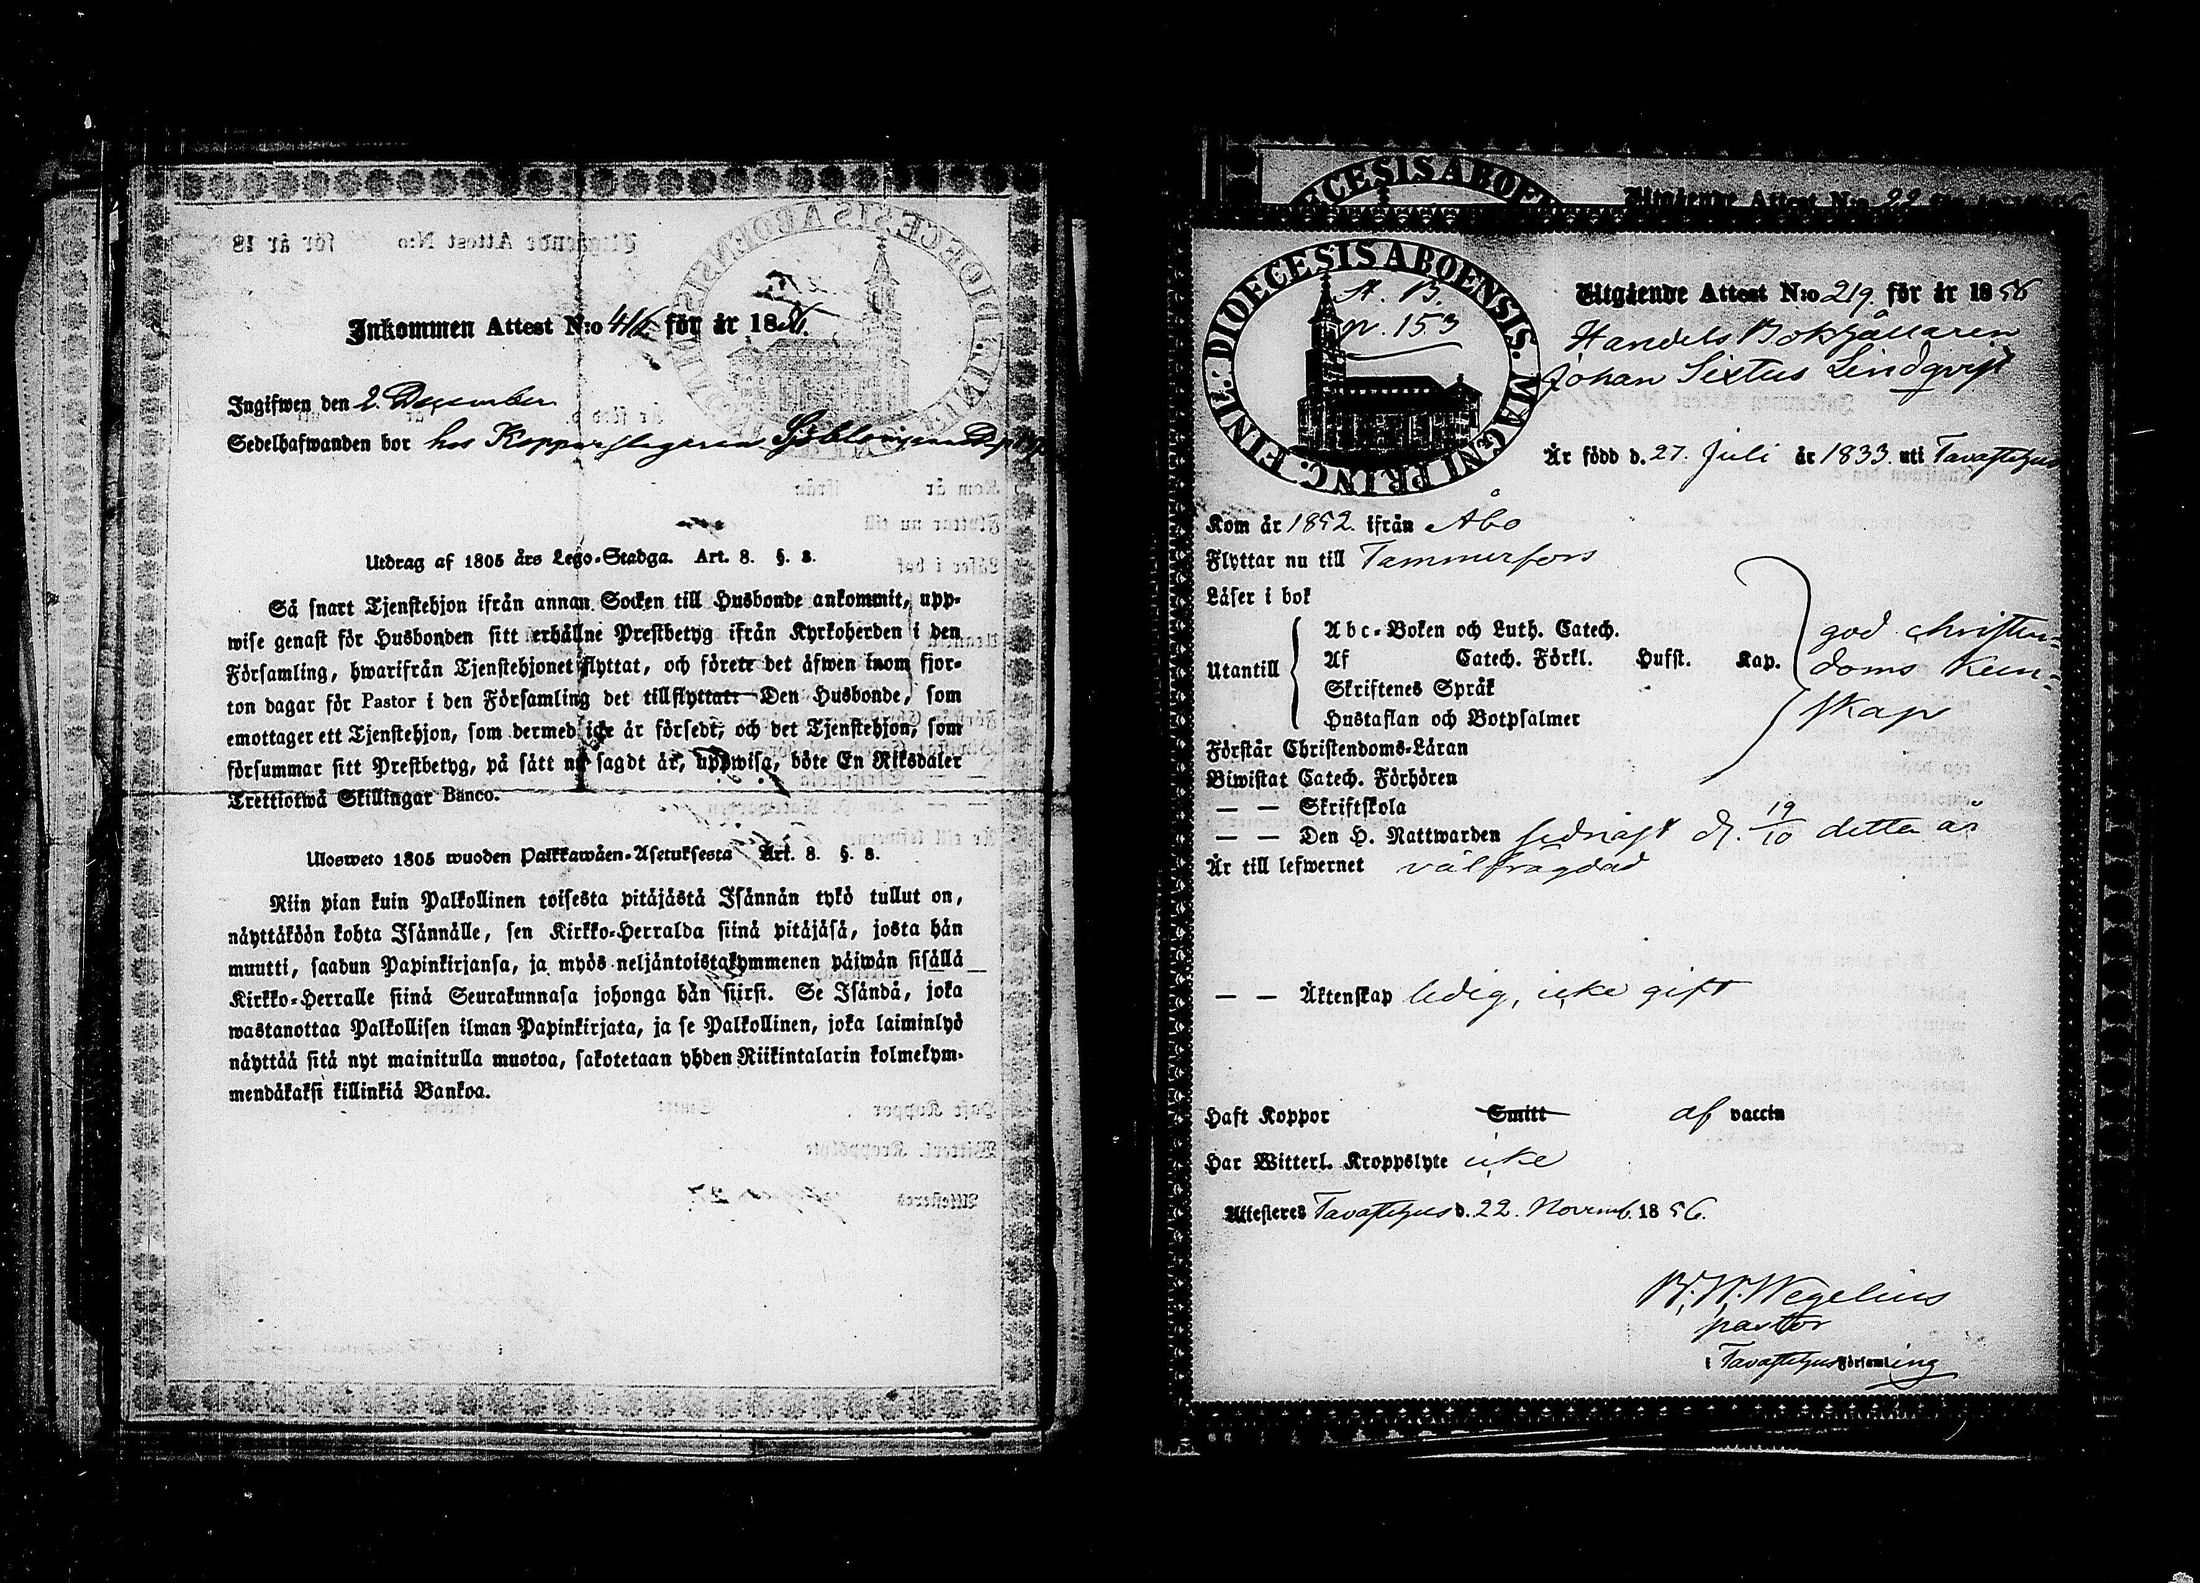 Inkommen Attest N:o 416 för år 1856.
Ingifwen den 2. December
Sedelhafwanden bor hos Kopparslagaren
Utdrag af 1805 års Lego-Stadga. Art. 8. §. 8.
Så snart Tjenstehjon ifrån annan Socken till Husbonde ankommit, upp-
wise genast för Husbonden sitt erhållne Prestbetyg ifrån Kyrkoherden i den
Församling, hwarifrån Tjenstehjonet flyttat, och förete det äfwen inom fjor-
ton dagar för Pastor i den Församling det tillflyttat: Den Husbonde, som
emottager ett Tjenstehjon, som dermed icke är försedt, och det Tjenstehjon, som
försummar sitt Prestbetyg, på sätt nu sagdt är, uppwisa, böte En Riksdaler
Trettiotwå Skillingar Banco.
Ulosweto 1805 wuoden Palkkawäen-Asetuksesta Art. 8. §. 8.
Niin pian kuin Palkollinen toisesta pitäjästä Isännän tykö tullut on,
näyttäköön kohta Isännälle, sen Kirkko-Herralda siinä pitäjäsä, josta hän
muutti, saadun Papinkirjansa, ja myös neljäntoistakymmenen päiwän sisällä
Kirkko-Herralle siinä Seurakunnasa johonga hän siirsi. Se Isändä, joka
wastanottaa Palkollisen ilman Papinkirjata, ja se Palkollinen, joka laiminlyö
näyttää sitä nyt mainitulla muotoa, sakotetaan yhden Riikintalarin kolmekym-
mendäkaksi killinkiä Bankoa.
Utgående Attest N:o 22
DIOECESIS ABOENSIS. MAGNI PRINC. FINL.
A. B.
p. 153
Utgående Attest N:o 219. för år 1856
Handels Bokhållaren
Johan Sixtus Lindqvist
Är född d. 27. Juli år 1833. uti Tavastehus
Kom år 1852. ifrån Åbo
Flyttar nu till Tammerfors
Läser i bok
Utantill
Abc-Boken och Luth. Catech.
Af Catech. Förkl. Husst. Kap.
Skriftenes Språk
Hustaflan och Botpsalmer
god christen-
doms kun-
skap
Förstår Christendoms-Läran
Biwistat Catech. Förhören
— — Skriftskola
— — Den H. Nattwarden sednast d. 19/10 detta år
Är till lefwernet välfrägdad
— — Äktenskap ledig, icke gift
Haft Koppor Smitt af vaccin
Har Witterl. Kroppslyte icke
Attesteres Tavastehus d. 22. Novemb. 1856.
Wegelius
pastor
i Tavastehus Församling